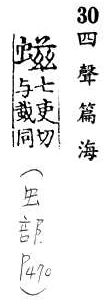 30 四聲篇海
䗹七吏切
与䖣同
(虫部 P470)